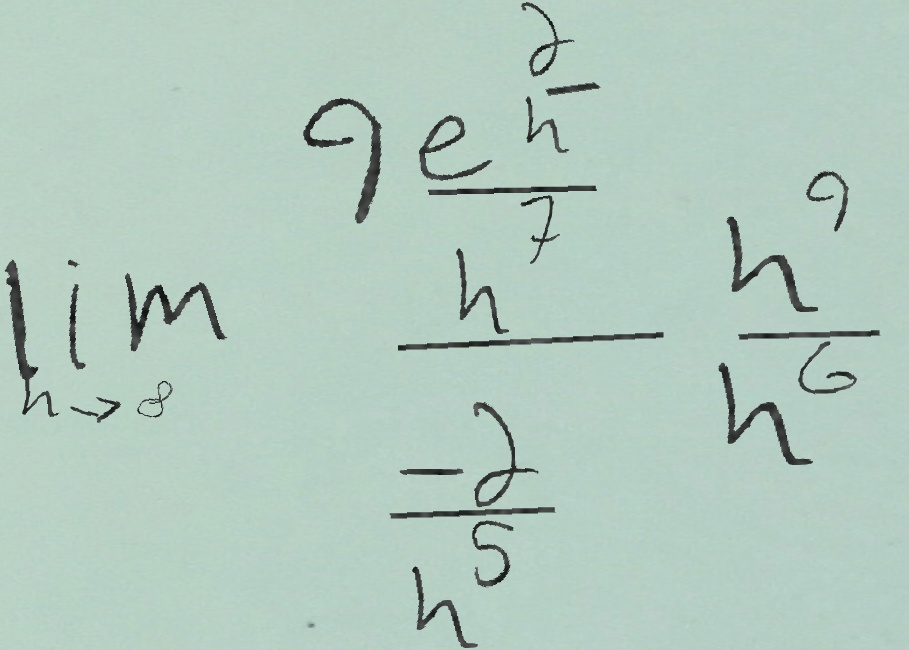 \lim_{h \to 8} \frac{\frac{9 e^{\frac{2}{h}}}{h^7}}{\frac{-2}{h^5}} \frac{h^9}{h^6}